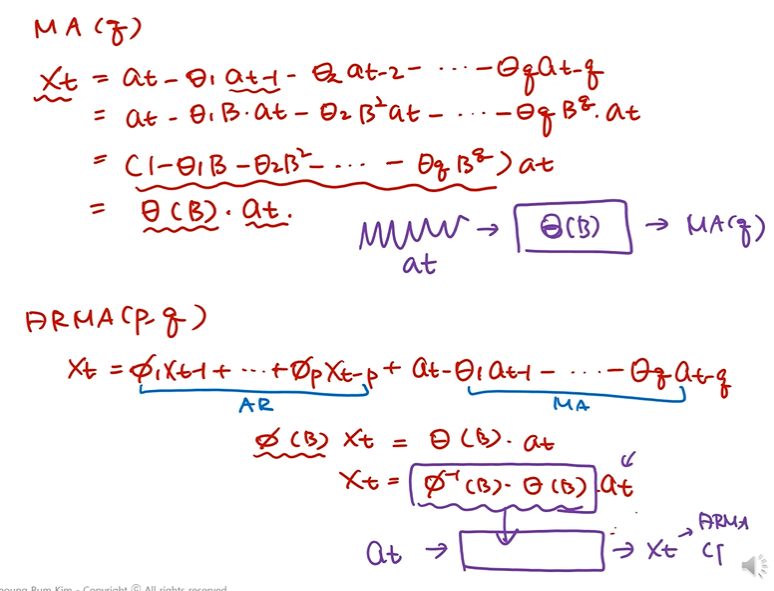 MA(q)
Xt = at - θ1 at-1 - θ2 at-2 - ··· - θq at-q
= at - θ1 B · at - θ2 B² at - ··· - θq B^q · at
= (1 - θ1 B - θ2 B² - ··· - θq B^q) at
= θ(B) · at.
at → θ(B) → MA(q)
ARMA(p, q)
Xt = φ1 Xt-1 + ··· + φp Xt-p + at - θ1 at-1 - ··· - θq at-q
AR MA
φ(B) Xt = θ(B) · at
Xt = φ⁻¹(B) · θ(B) · at
at → → Xt → ARMA
Kim - Copyright ⓒ All rights reserved